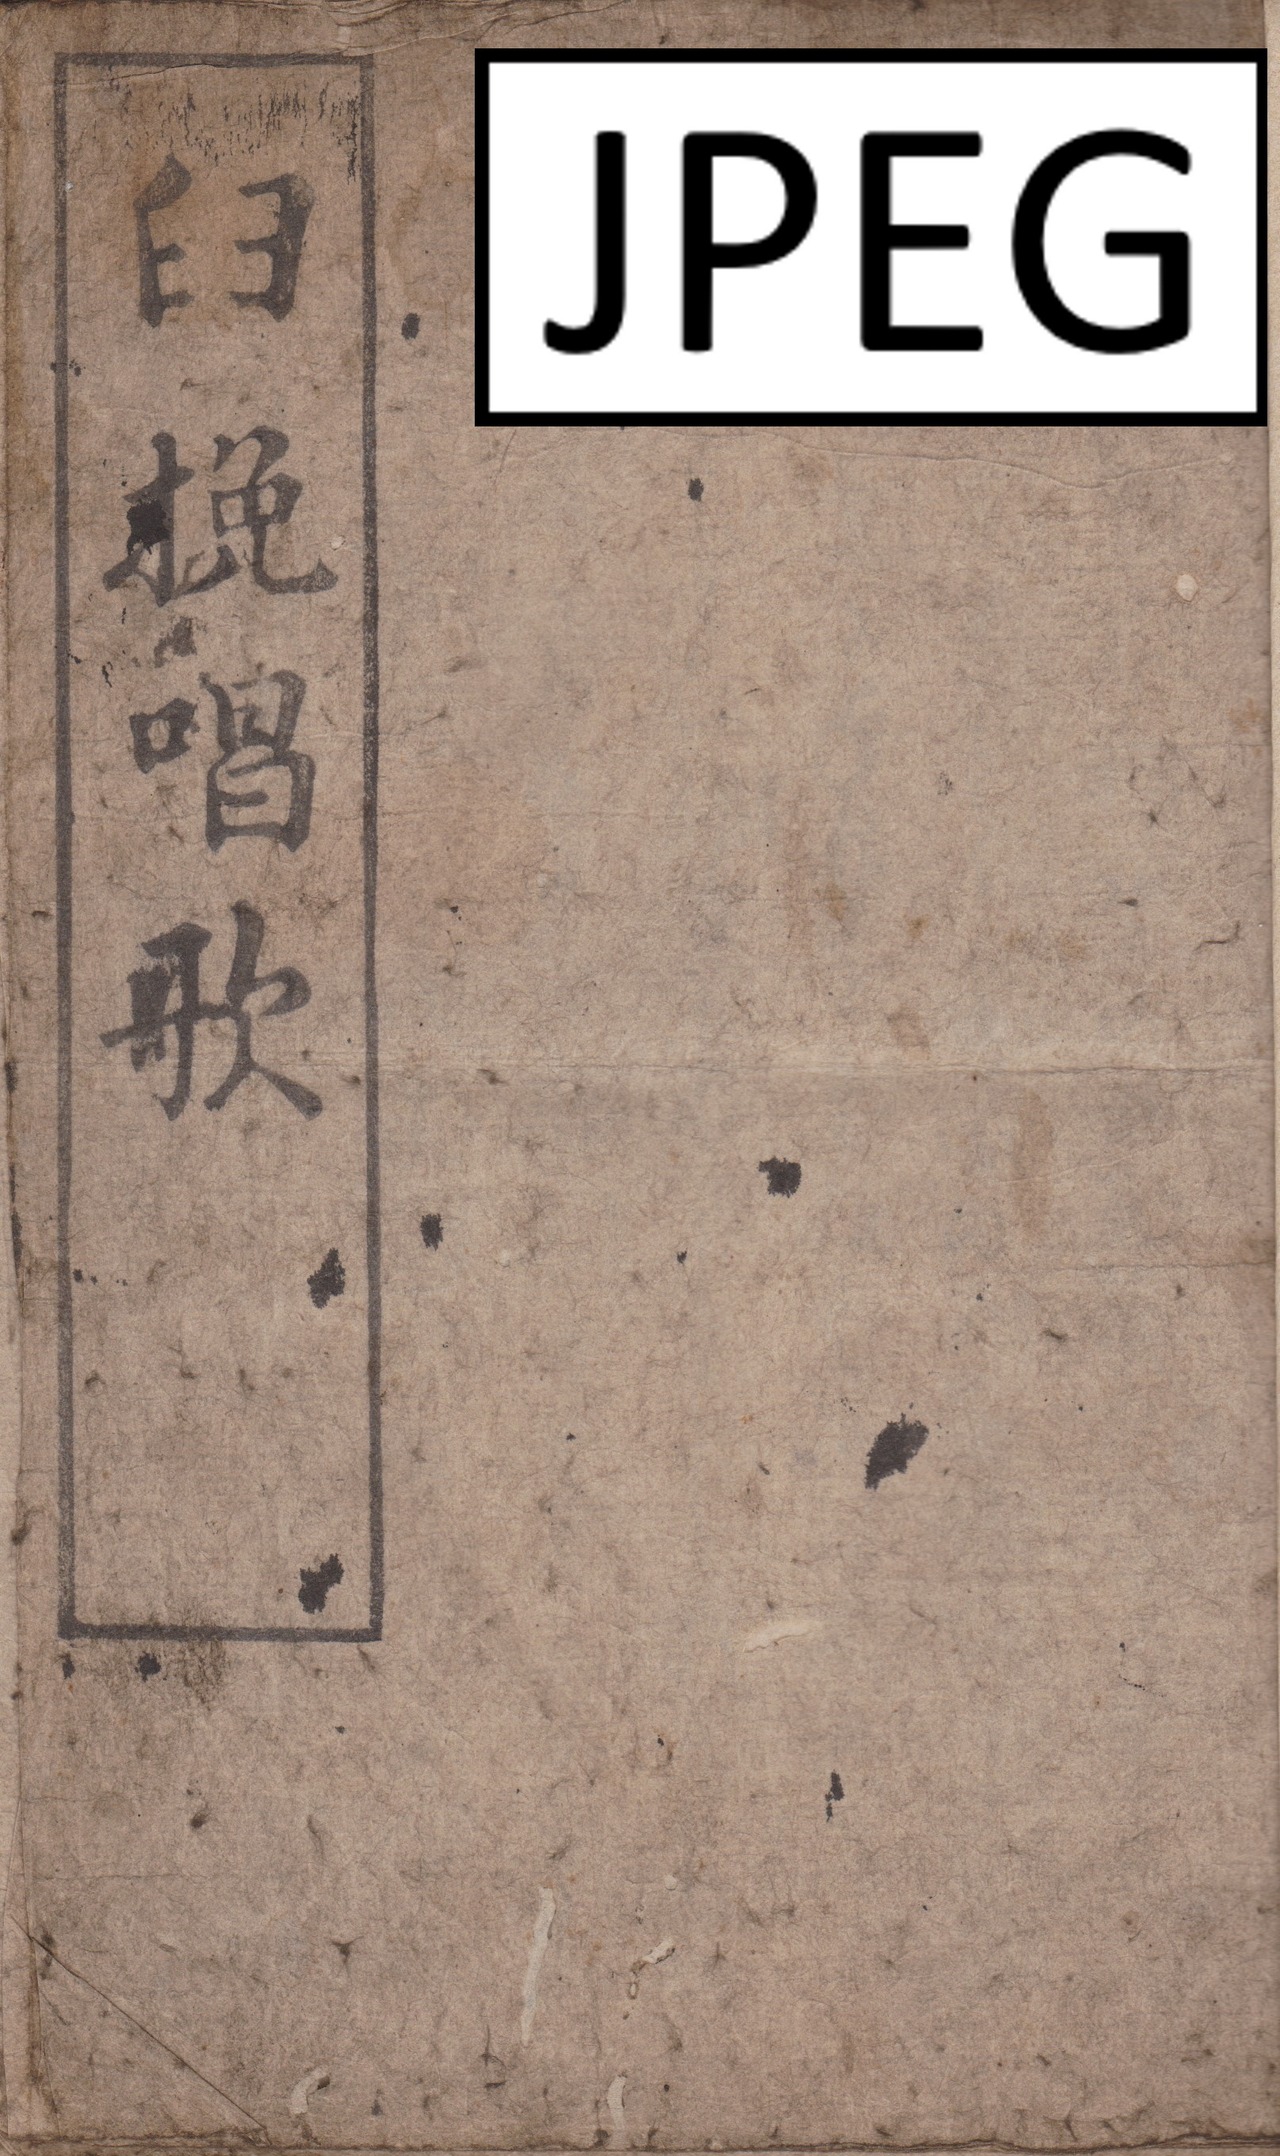 JPEG
臼挽唱歌